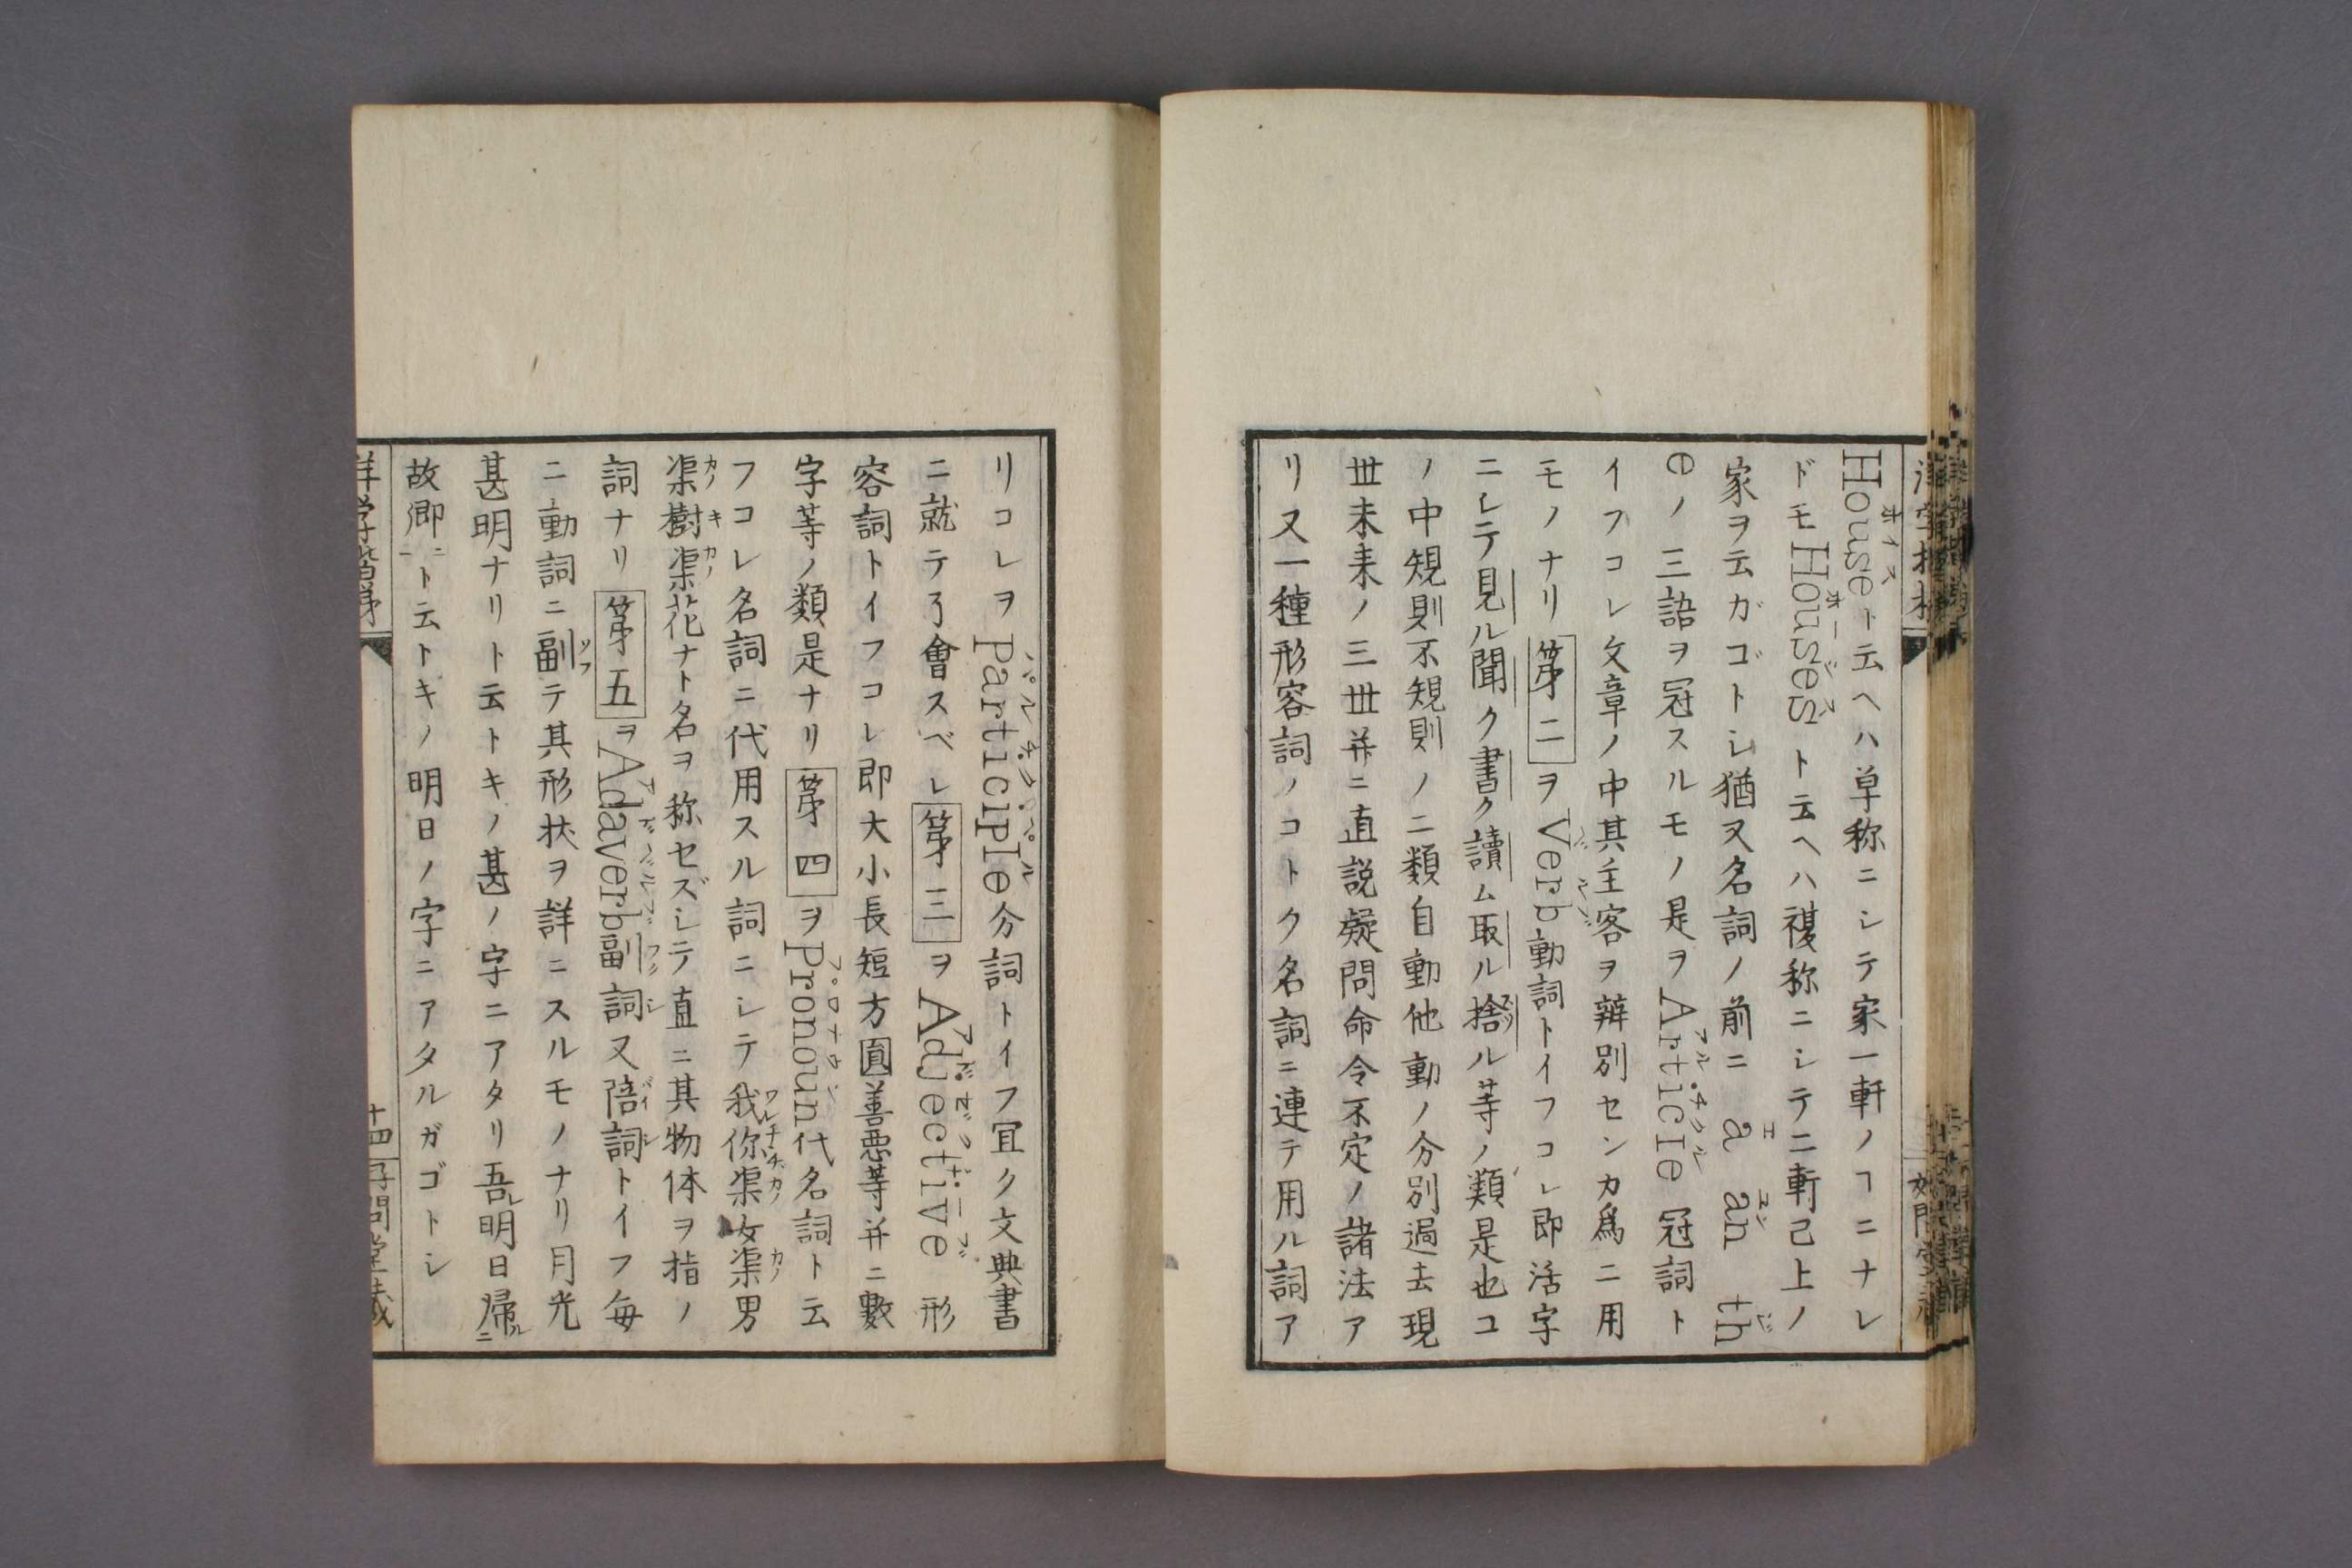 Houseト云ヘハ草称ニシテ家一軒ノヿニナレ
ドモHousesト云ヘハ複称ニシテ二軒已上ノ
家ヲ云ガゴトシ猶又名詞ノ前ニ a an th
eノ三語ヲ冠スルモノ是ヲArticle冠詞ト
イフコレ文章ノ中其主客ヲ辨別センカ爲ニ用
モノナリ第二ヲVerb動詞トイフコレ即活字
ニシテ見ル聞ク書ク讀ム取ル捨ル等ノ類是也コ
ノ中規則不規則ノ二類自動他動ノ分別過去現
世未来ノ三世并ニ直説疑問命令不定ノ諸法ア
リ又一種形容詞ノコトク名詞ニ連テ用ル詞ア
リコレヲParticiple分詞トイフ冝ク文典書
ニ就テ了會スベシ第三ヲAdjective形
容詞トイフコレ即大小長短方圓善悪等并ニ數
字等ノ類是ナリ第四ヲPronoun代名詞ト云
フコレ名詞ニ代用スル詞ニシテ我你渠女渠男
渠樹渠花ナト名ヲ称セズシテ直ニ其物体ヲ指ノ
詞ナリ第五ヲAdaverb副詞又陪詞トイフ毎
ニ動詞ニ副テ其形状ヲ詳ニスルモノナリ月光
甚明ナリト云トキノ甚ノ字ニアタリ吾レ明日帰ル二
故郷ニ一ト云トキノ明日ノ字ニアタルガゴトシ
洋学階梯
十四